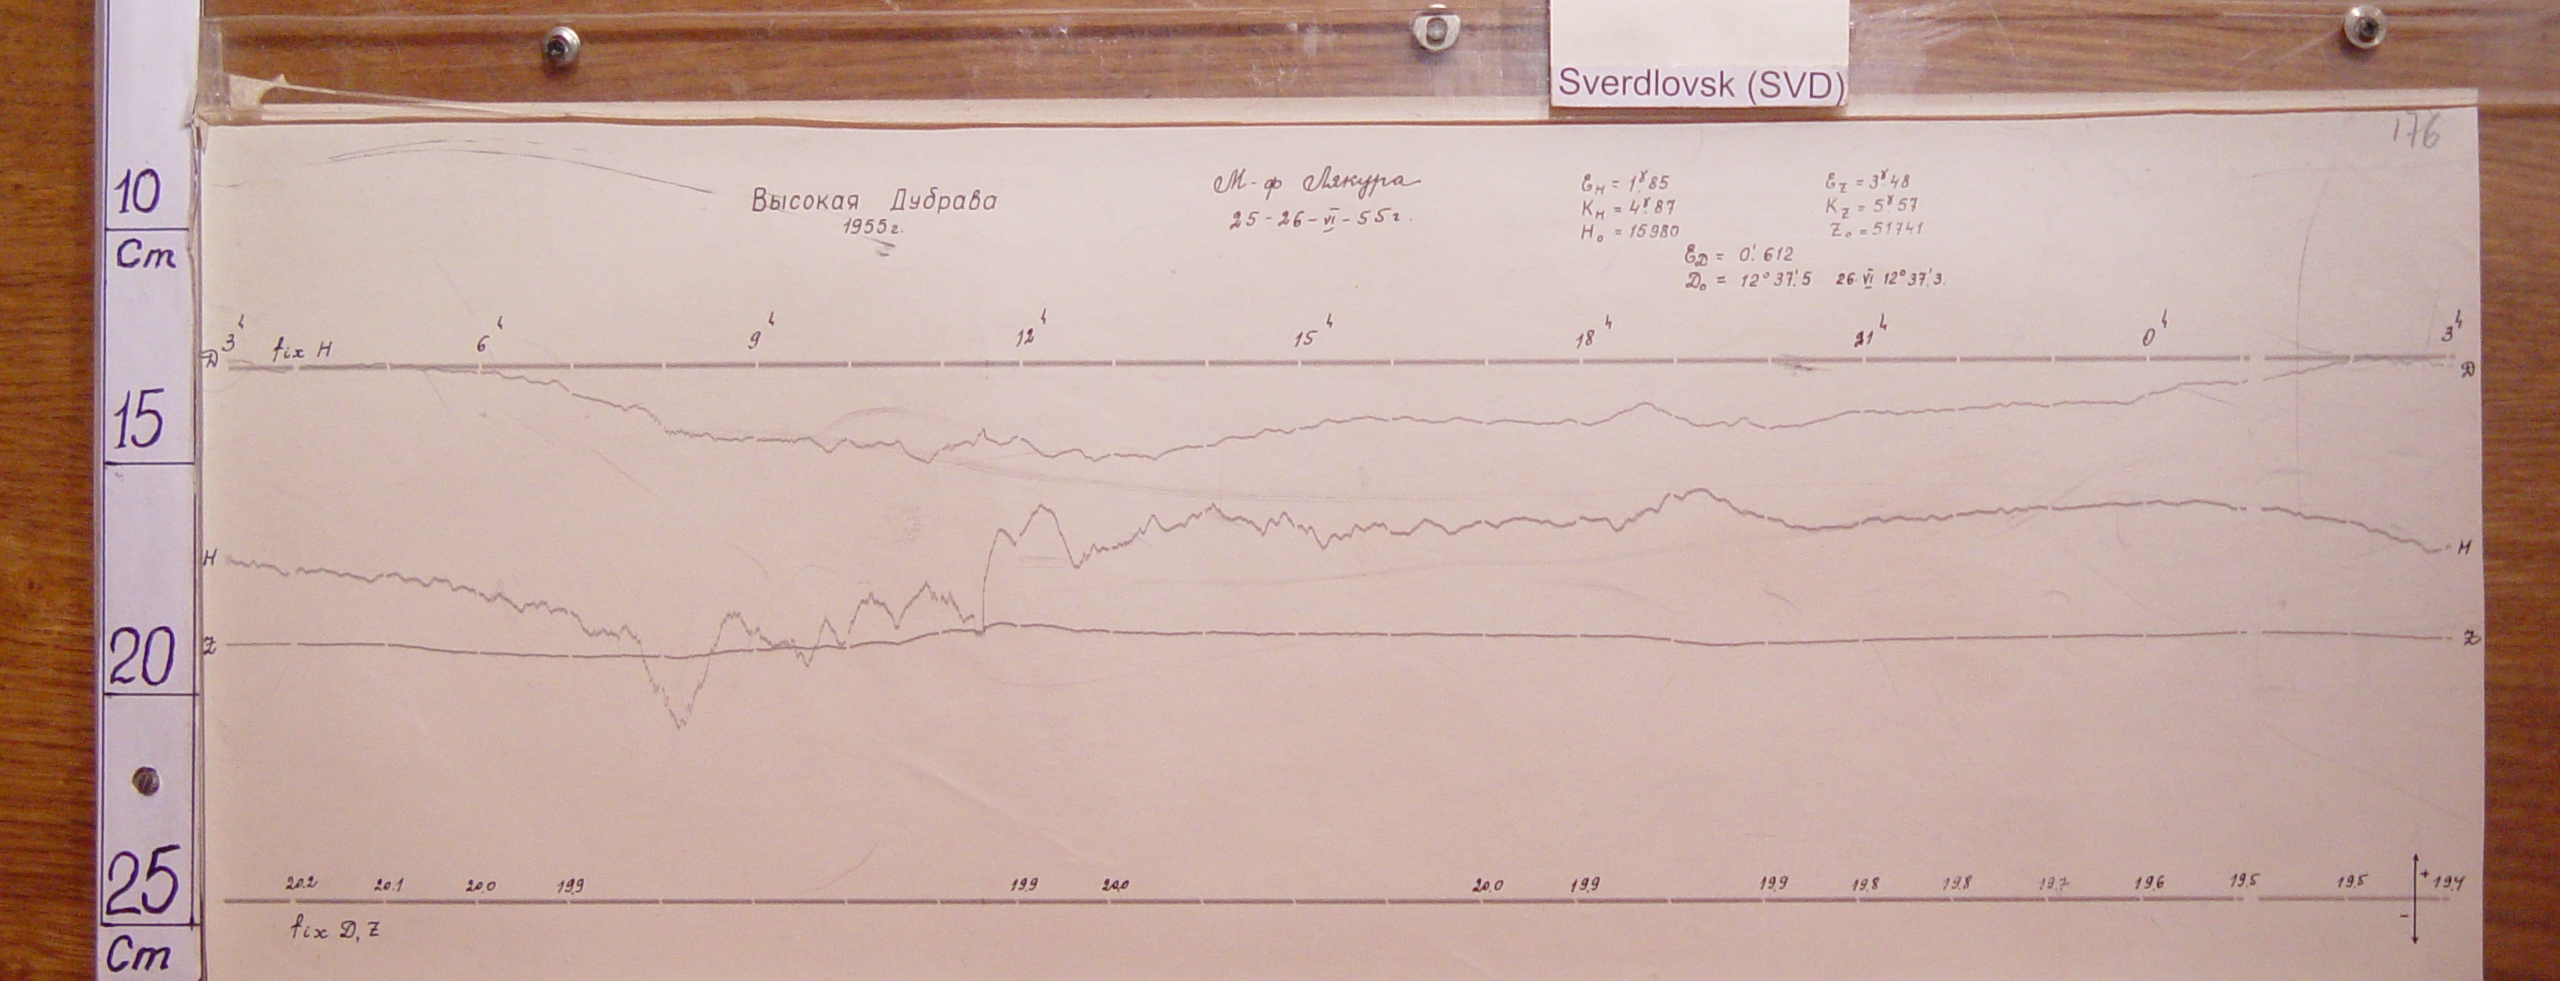 Sverdlovsk (SVD)
176
10
Cm
15
20
25
Cm
Высокая Дубрава
1955г.
М-ф Лякура
25-26-VI-55г.
Ɛн = 1ˠ.85
Kн = 4ˠ.87
H₀ = 15980
Ɛz = 3ˠ.48
Kz = 5ˠ.57
Z₀ = 51741
ƐD = 0'.612
D₀ = 12° 37'.5 26·VI 12° 37'.3.
3ʰ 6ʰ 9ʰ 12ʰ 15ʰ 18ʰ 21ʰ 0ʰ 3ʰ
fix H
D D
H H
Z Z
20.2 20.1 20.0 19.9 19.9 20.0 20.0 19.9 19.9 19.8 19.8 19.7 19.6 19.5 19.5 + 19.4
-
fix D, Z